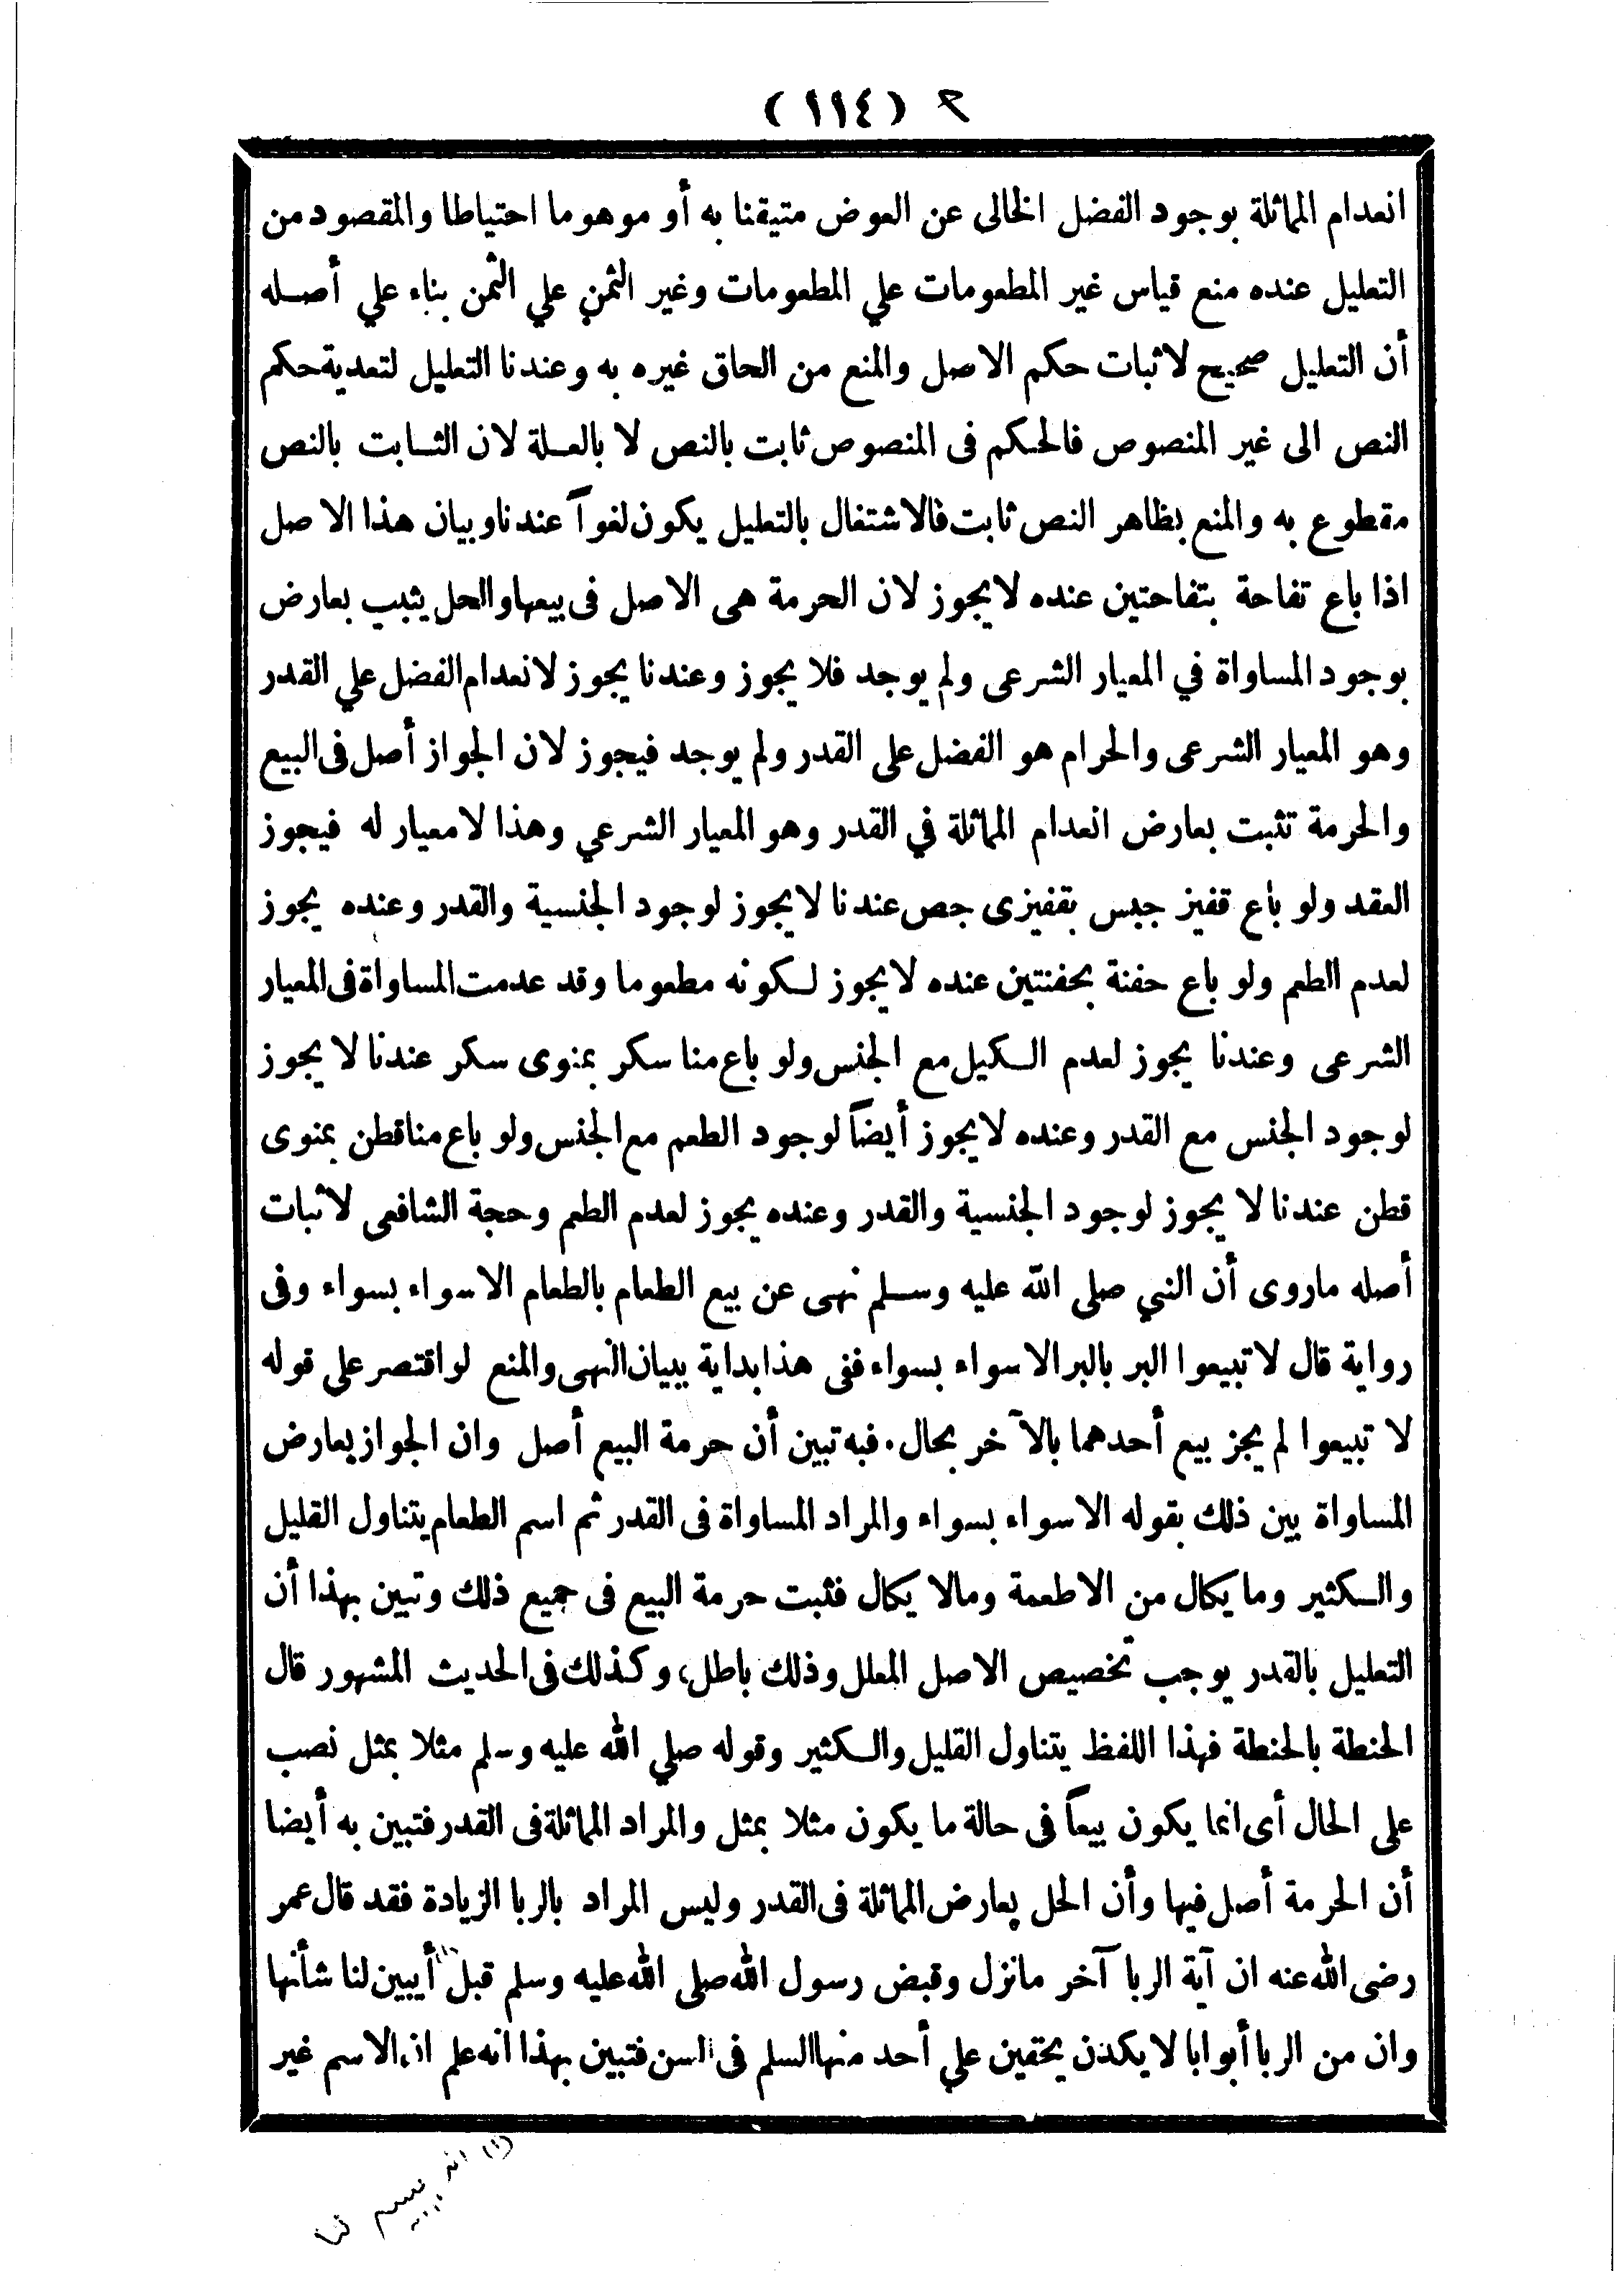 (١١٤)
انعدام المماثلة بوجود الفضل الخالى عن العوض متيقنا به أو موهوما احتياطا والمقصود من
التعليل عنده منع قياس غير المطعومات علي المطعومات وغير الثمن علي الثمن بناء علي أصله
أن التعليل صحيح لاثبات حكم الاصل والمنع من الحاق غيره به وعندنا التعليل لتعدية حكم
النص الى غير المنصوص فالحكم فى المنصوص ثابت بالنص لا بالعلة لان الثابت بالنص
مقطوع به والمنع بظاهر النص ثابت فالاشتغال بالتعليل يكون لغواً عندنا وبيان هذا الاصل
اذا باع تفاحة بتفاحتين عنده لا يجوز لان الحرمة هى الاصل فى بيعها والحل يثبت بعارض
بوجود المساواة في المعيار الشرعى ولم يوجد فلا يجوز وعندنا يجوز لانعدام الفضل علي القدر
وهو المعيار الشرعى والحرام هو الفضل على القدر ولم يوجد فيجوز لان الجواز أصل فى البيع
والحرمة تثبت بعارض انعدام المماثلة في القدر وهو المعيار الشرعي وهذا لا معيار له فيجوز
العقد ولو باع قفيز جبس بقفيزى جص عندنا لا يجوز لوجود الجنسية والقدر وعنده يجوز
لعدم الطعم ولو باع حفنة بحفنتين عنده لا يجوز لكونه مطعوما وقد عدمت المساواة فى المعيار
الشرعى وعندنا يجوز لعدم الكيل مع الجنس ولو باع منا سكر بمنوى سكر عندنا لا يجوز
لوجود الجنس مع القدر وعنده لا يجوز أيضاً لوجود الطعم مع الجنس ولو باع منا قطن بمنوى
قطن عندنا لا يجوز لوجود الجنسية والقدر وعنده يجوز لعدم الطعم وحجة الشافعى لاثبات
أصله ماروى أن النبي صلى الله عليه وسلم نهى عن بيع الطعام بالطعام الا سواء بسواء وفى
رواية قال لا تبيعوا البر بالبر الا سواء بسواء ففى هذا بداية ببيان النهى والمنع لو اقتصر على قوله
لا تبيعوا لم يجز بيع أحدهما بالآخر بحال . فبه تبين أن حرمة البيع أصل وان الجواز بعارض
المساواة بين ذلك بقوله الا سواء بسواء والمراد المساواة فى القدر ثم اسم الطعام يتناول القليل
والكثير وما يكال من الاطعمة ومالا يكال فثبت حرمة البيع فى جميع ذلك وتبين بهذا أن
التعليل بالقدر يوجب تخصيص الاصل المعلل وذلك باطل، وكذلك فى الحديث المشهور قال
الحنطة بالحنطة فهذا اللفظ يتناول القليل والكثير وقوله صلي الله عليه وسلم مثلا بمثل نصب
على الحال أى انما يكون بيعاً فى حالة ما يكون مثلا بمثل والمراد المماثلة فى القدر فتبين به أيضا
أن الحرمة أصل فيها وأن الحل بعارض المماثلة فى القدر وليس المراد بالربا الزيادة فقد قال عمر
رضى الله عنه ان آية الربا آخر مانزل وقبض رسول الله صلى الله عليه وسلم قبل (١) أيبين لنا شأنها
وان من الربا أبوابا لا يكدن يخفين علي أحد منها السلم فى السن فتبين بهذا انه علم ان الاسم غير
(١) انه يبين لنا